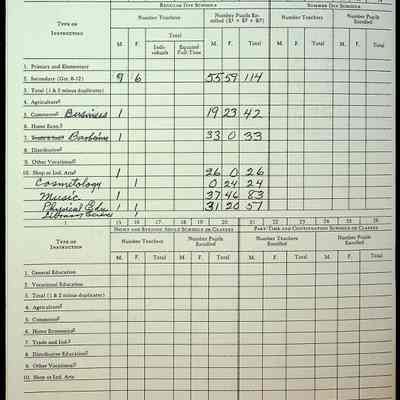 REGULAR DAY SCHOOLS SUMMER DAY SCHOOLS
TYPE OF INSTRUCTION Number Teachers Number Pupils Enrolled Number Teachers Number Pupils Enrolled
Total
M. F. Individuals Equated Full-Time M. F. Total M. F. Total M. F. Total
1. Primary and Elementary
2. Secondary (Grs. 8-12) 9 6 55 59 114
3. Total (1 & 2 minus duplicates)
4. Agriculture
5. Commercial Business 1 19 23 42
6. Home Econ.
7. 1 33 0 33
8. Distributive
9. Other Vocational
10. Shop or Ind. Arts 1 26 0 26
Cosmetology 1 0 24 24
Music 1 37 46 83
Physical Edu. 1 1 31 20 51
Library Science 1
1 15 16 17 18 19 20 21 22 23 24 25 26
NIGHT AND EVENING ADULT SCHOOLS OR CLASSES PART-TIME AND CONTINUATION SCHOOLS OR CLASSES
TYPE OF INSTRUCTION Number Teachers Number Pupils Enrolled Number Teachers Enrolled Number Pupils Enrolled
M. F. Total M. F. Total M. F. Total M. F. Total
1. General Education
2. Vocational Education
3. Total (1 & 2 minus duplicates)
4. Agriculture
5. Commercial
6. Home Economics
7. Trade and Ind.
8. Distributive Education
9. Other Vocational
10. Shop or Ind. Arts